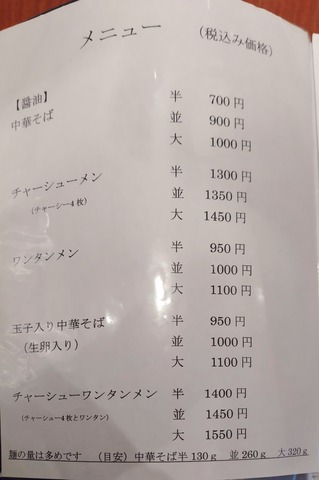 メニュー (税込み価格)
【醤油】 半 700円
中華そば 並 900円
大 1000円
チャーシューメン 半 1300円
(チャーシー4枚) 並 1350円
大 1450円
ワンタンメン 半 950円
並 1000円
大 1100円
玉子入り中華そば 半 950円
(生卵入り) 並 1000円
大 1100円
チャーシューワンタンメン 半 1400円
(チャーシュー4枚とワンタン) 並 1450円
大 1550円
麺の量は多めです (目安) 中華そば半130g 並260g 大320g